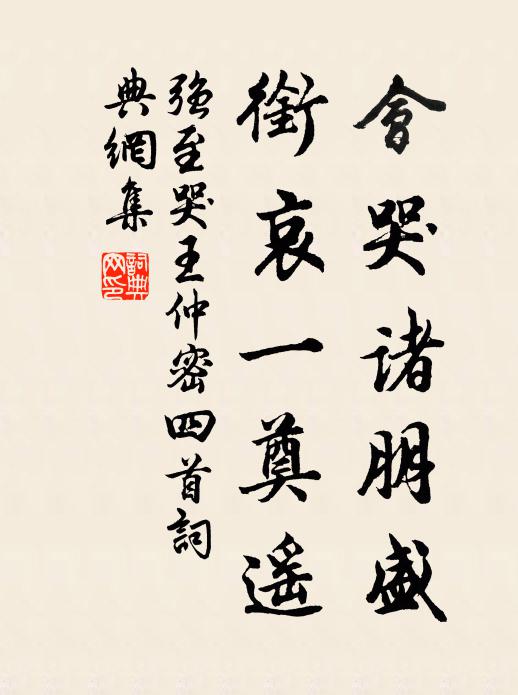 會哭諸朋盛
銜哀一奠遥
強至哭王仲密四首詞
典網集
詞典网印